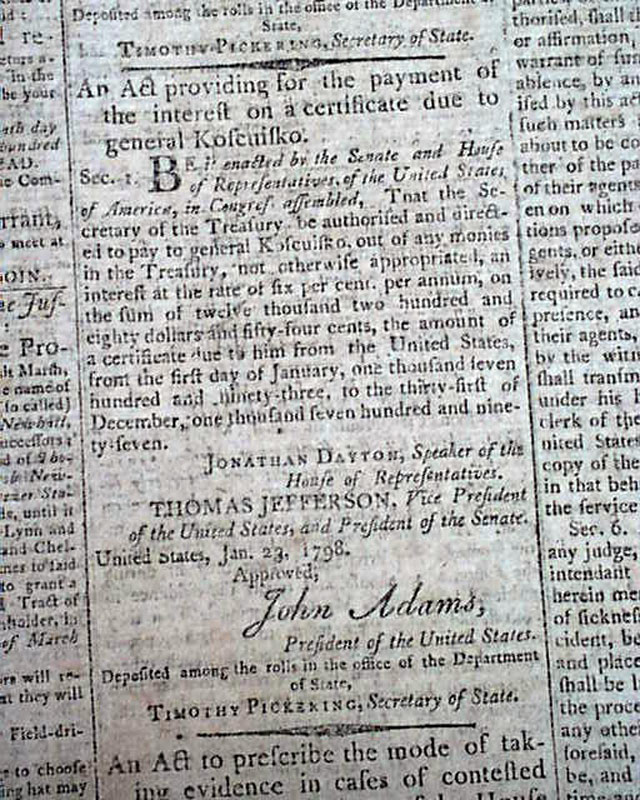 re-
in the
be your
hundred
EAD.
Com-
rrant,
meet at
OIN.
Juſ-
Pro-
Marſh,
name of
ſo called)
New-
until it
Lynn and
and Chel-
to grant a
Tract of
of March
will re-
at they will
Field-dri-
to choose
may
Depoſited among the rolls in the office of the Department of
State,
TIMOTHY PICKERING, Secretary of State.
An Act providing for the payment of
the intereſt on a certificate due to
general Koſcuiſko.
Sec. 1. BE it enacted by the Senate and Houſe
of Repreſentatives, of the United States,
of America, in Congreſs aſſembled, That the Se-
cretary of the Treaſury be authoriſed and direct-
ed to pay to general Koſcuiſko, out of any monies
in the Treaſury, not otherwiſe appropriated, an
intereſt at the rate of ſix per cent. per annum, on
the ſum of twelve thouſand two hundred and
eighty dollars and fifty-four cents, the amount of
a certificate due to him from the United States,
from the firſt day of January, one thouſand ſeven
hundred and ninety-three, to the thirty-firſt of
December, one thouſand ſeven hundred and nine-
ty-ſeven.
JONATHAN DAYTON, Speaker of the
Houſe of Repreſentatives.
THOMAS JEFFERSON, Vice Preſident
of the United States, and Preſident of the Senate.
United States, Jan. 23, 1798.
Approved;
John Adams,
Preſident of the United States.
Depoſited among the rolls in the office of the Department
of State,
TIMOTHY PICKERING, Secretary of State.
An Act to preſcribe the mode of tak-
ing evidence in caſes of conteſted
thoriſed, ſhall
or affirmation,
warrant of
abſence, by
iſed by this
ſuch matters
about to be
ther of the
of their agents
en on which
tions
gents, or
ively, the ſaid
required to
preſence, an
their agents,
by the
ſhall tranſm
under his
clerk of the
nited States
copy of the
in that beh
the ſervice
Sec. 6.
any judge,
intendant
herein
of ſickneſs
cident, be
and place
ſhall be
the proce
any othe
foreſaid,
be, and